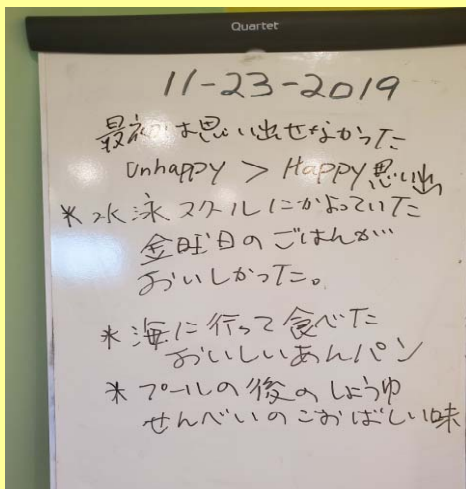 Quartet
11-23-2019
最初は思い出せなかった
Unhappy > Happy 思い出
* 水泳スクールにかよっていた
金曜日のごはんが
おいしかった。
* 海に行って食べた
おいしいあんパン
* プールの後のしょうゆ
せんべいのこおばしい味